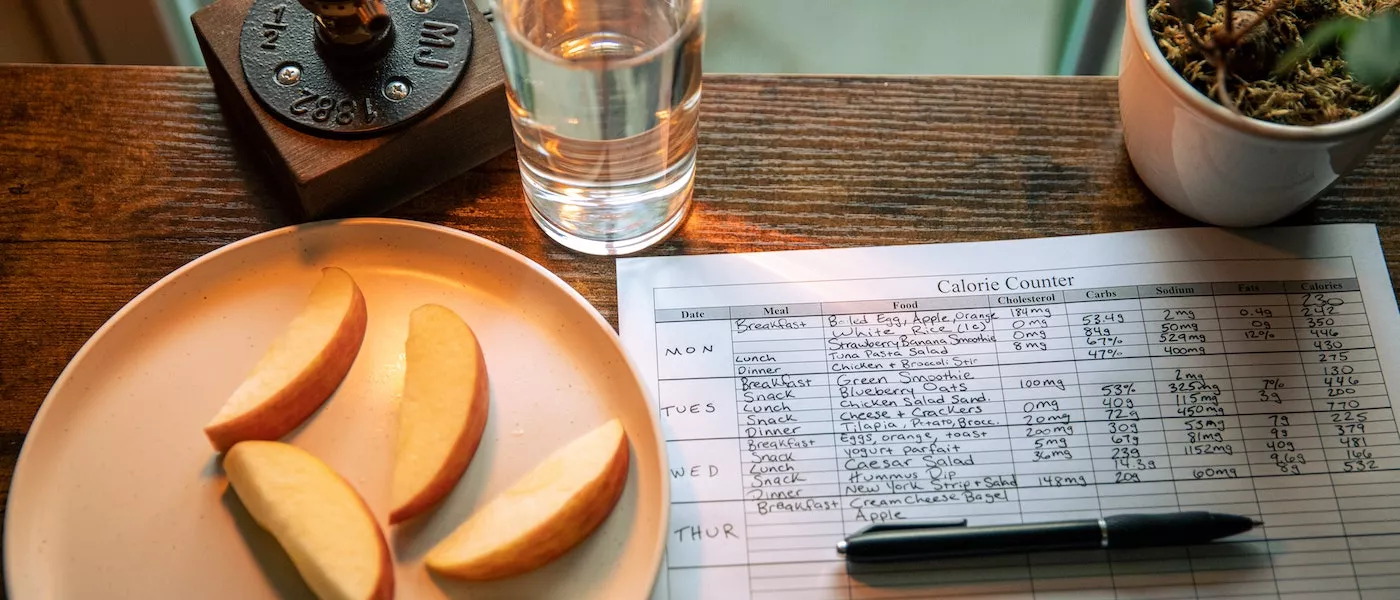 MJ
1/2
1882
Calorie Counter
Date Meal Food Cholesterol Carbs Sodium Fats Calories
MON Breakfast Boiled Egg, Apple, Orange 184mg 230
White Rice (1c) 0mg 53.4g 2mg 0.4g 242
Strawberry Banana Smoothie 0mg 84g 50mg 0g 350
Lunch Tuna Pasta Salad 8mg 67% 529mg 12% 446
Dinner Chicken + Broccoli Stir 47% 400mg 430
TUES Breakfast Green Smoothie 275
Snack Blueberry Oats 2mg 130
Lunch Chicken Salad Sand. 100mg 53% 325mg 7% 446
Snack Cheese + Crackers 40g 115mg 3g 200
Dinner Tilapia, Potato, Brocc. 0mg 72g 450mg 770
WED Breakfast Eggs, orange, toast 20mg 30g 53mg 7g 225
Snack yogurt parfait 200mg 67g 81mg 9g 379
Lunch Caesar Salad 5mg 23g 1152mg 40g 481
Snack Hummus Dip 36mg 14.3g 9.6g 166
Dinner New York Strip + Salad 148mg 20g 60mg 8g 532
THUR Breakfast Cream Cheese Bagel
Apple